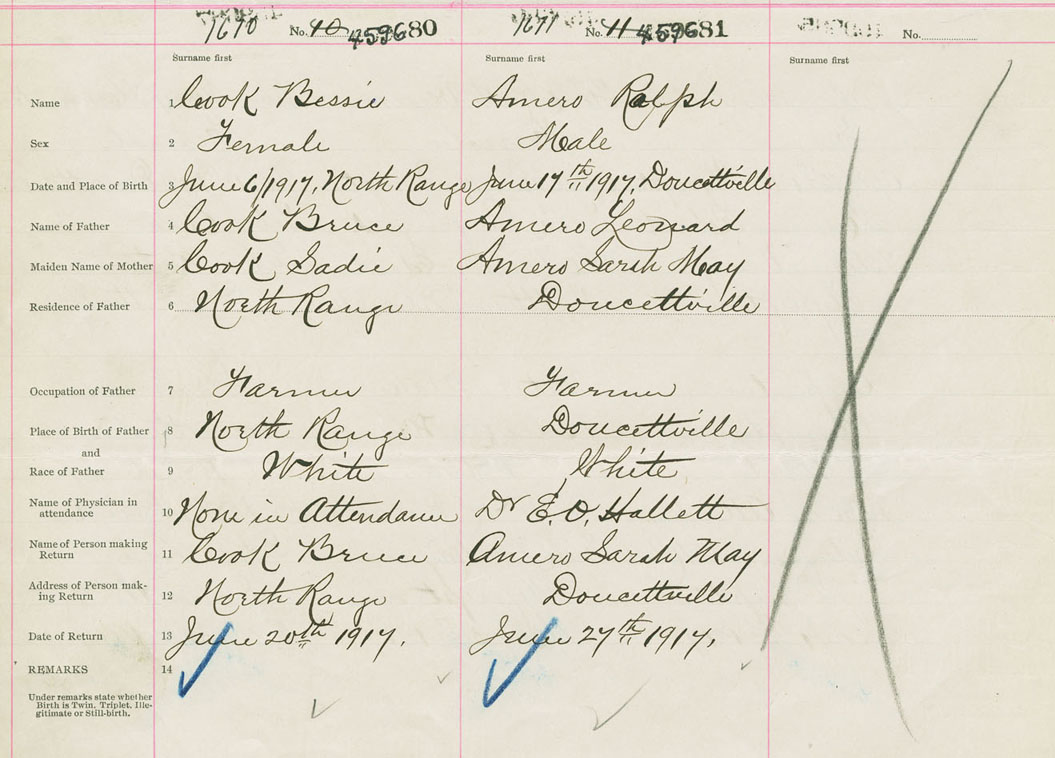 1670 No. 40 459680
1671 No. 41 459681
No.
Surname first
Surname first
Surname first
Name 1 Cook Bessie Amero Ralph
Sex 2 Female Male
Date and Place of Birth 3 June 6/1917, North Range June 17th 1917, Doucettville
Name of Father 4 Cook Bruce Amero Leonard
Maiden Name of Mother 5 Cook Sadie Amero Sarah May
Residence of Father 6 North Range Doucettville
Occupation of Father 7 Farmer Farmer
Place of Birth of Father 8 North Range Doucettville
and
Race of Father 9 White White
Name of Physician in
attendance 10 None in Attendance Dr E. O. Hallett
Name of Person making
Return 11 Cook Bruce Amero Sarah May
Address of Person mak-
ing Return 12 North Range Doucettville
Date of Return 13 June 20th 1917. June 27th 1917.
REMARKS 14
Under remarks state whether
Birth is Twin, Triplet, Ille-
gitimate or Still-birth.